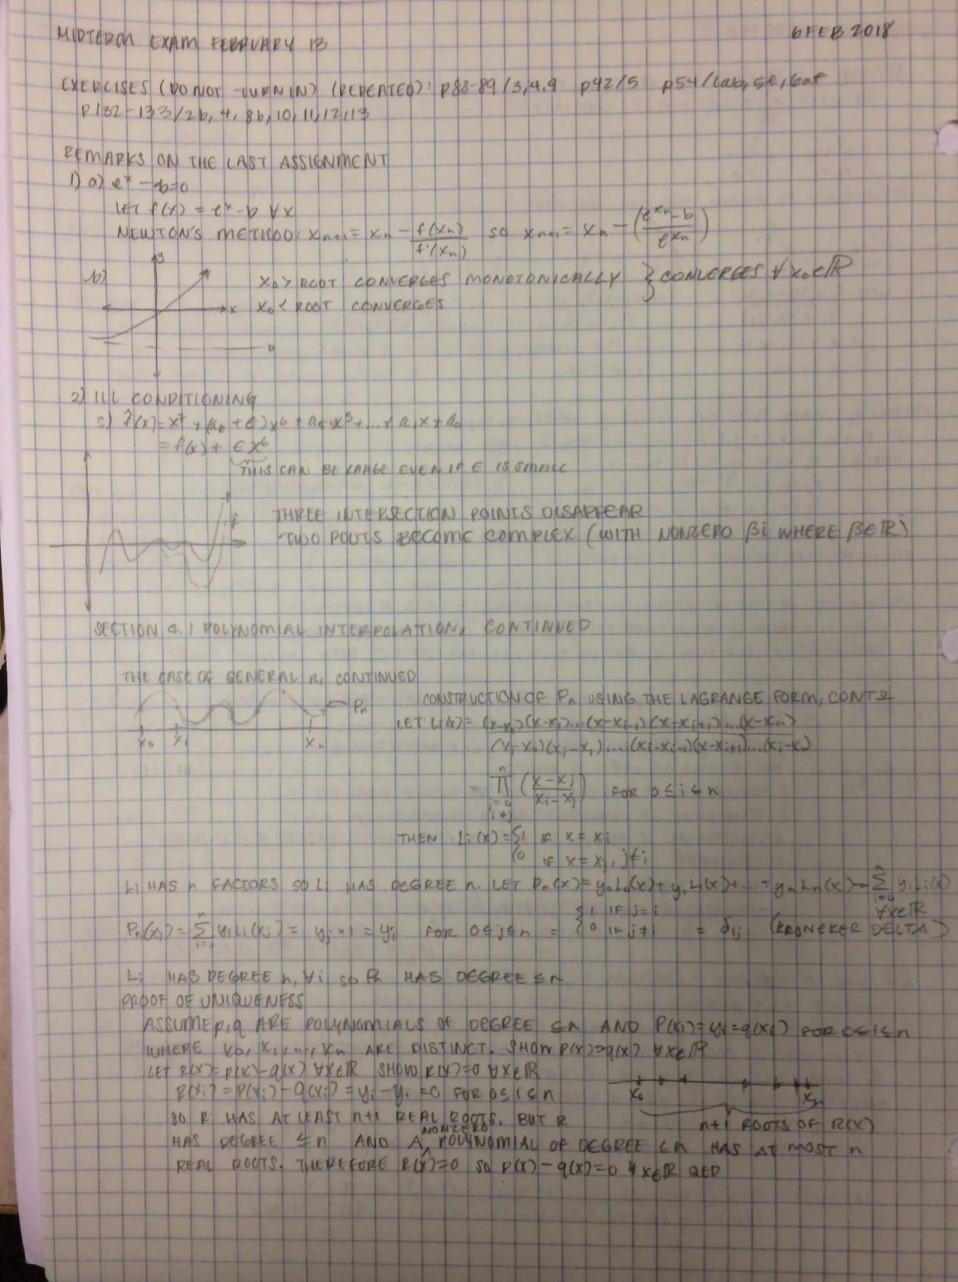 MIDTERM EXAM FEBRUARY 13
6 FEB 2018
EXERCISES (DO NOT TURN IN) (REPEATED): p88-89/3,4,9 p92/5 p54/1ab,5e,6af
p132-133/2b, 4, 8b, 10, 11, 12, 13
REMARKS ON THE LAST ASSIGNMENT
1) a) e^x - b = 0
LET f(x) = e^x - b ∀x
NEWTON'S METHOD: x_{n+1} = x_n - f(x_n)/f'(x_n) so x_{n+1} = x_n - ((e^{x_n} - b)/e^{x_n})
b)
y
x
b
x_0 > ROOT CONVERGES MONOTONICALLY } CONVERGES ∀ x_0 ∈ ℝ
x_0 < ROOT CONVERGES
2) ILL CONDITIONING
c) f̂(x) = x^7 + (a_6 + ε)x^6 + a_5x^5 + ... + a_1x + a_0
= f(x) + εx^6
THIS CAN BE LARGE EVEN IF ε IS SMALL
THREE INTERSECTION POINTS DISAPPEAR
TWO ROOTS BECOME COMPLEX (WITH NONZERO βi WHERE β∈ℝ)
SECTION 4.1 POLYNOMIAL INTERPOLATION, CONTINUED
THE CASE OF GENERAL n, CONTINUED
P_n
x_0 x_1 x_n
CONSTRUCTION OF P_n USING THE LAGRANGE FORM, CONT'D
LET L_i(x) = (x-x_0)(x-x_1)...(x-x_{i-1})(x-x_{i+1})...(x-x_n)
(x_i-x_0)(x_i-x_1)...(x_i-x_{i-1})(x-x_{i+1})...(x_i-x_n)
= ∏_{j=0, i≠j}^{n} ((x-x_j)/(x_i-x_j)) FOR 0≤i≤n
THEN L_i(x) = {1 IF x = x_i
{0 IF x = x_j, j≠i
L_i HAS n FACTORS SO L_i HAS DEGREE n. LET P_n(x) = y_0L_0(x) + y_1L_1(x) + ... + y_nL_n(x) = ∑_{i=0}^{n} y_iL_i(x)
∀x∈ℝ
P_n(x_j) = ∑_{i=0}^{n} y_iL_i(x_j) = y_j·1 = y_j FOR 0≤j≤n = {1 IF j=i {0 IF j≠i = δ_{ij} (KRONEKER DELTA)
L_i HAS DEGREE n, ∀i so P_n HAS DEGREE ≤n
PROOF OF UNIQUENESS
ASSUME p, q ARE POLYNOMIALS OF DEGREE ≤n AND P(x_i)=y_i=q(x_i) FOR 0≤i≤n
WHERE x_0, x_1, ..., x_n ARE DISTINCT. SHOW P(x)=q(x) ∀x∈ℝ
LET R(x)=p(x)-q(x) ∀x∈ℝ SHOW R(x)=0 ∀x∈ℝ
R(x_i)=P(x_i)-q(x_i)=y_i-y_i=0 FOR 0≤i≤n
x_0 x_n
SO R HAS AT LEAST n+1 REAL ROOTS. BUT R
n+1 ROOTS OF R(x)
HAS DEGREE ≤n AND A NONZERO POLYNOMIAL OF DEGREE ≤n HAS AT MOST n
REAL ROOTS. THEREFORE R(x)=0 so P(x)-q(x)=0 ∀x∈ℝ QED